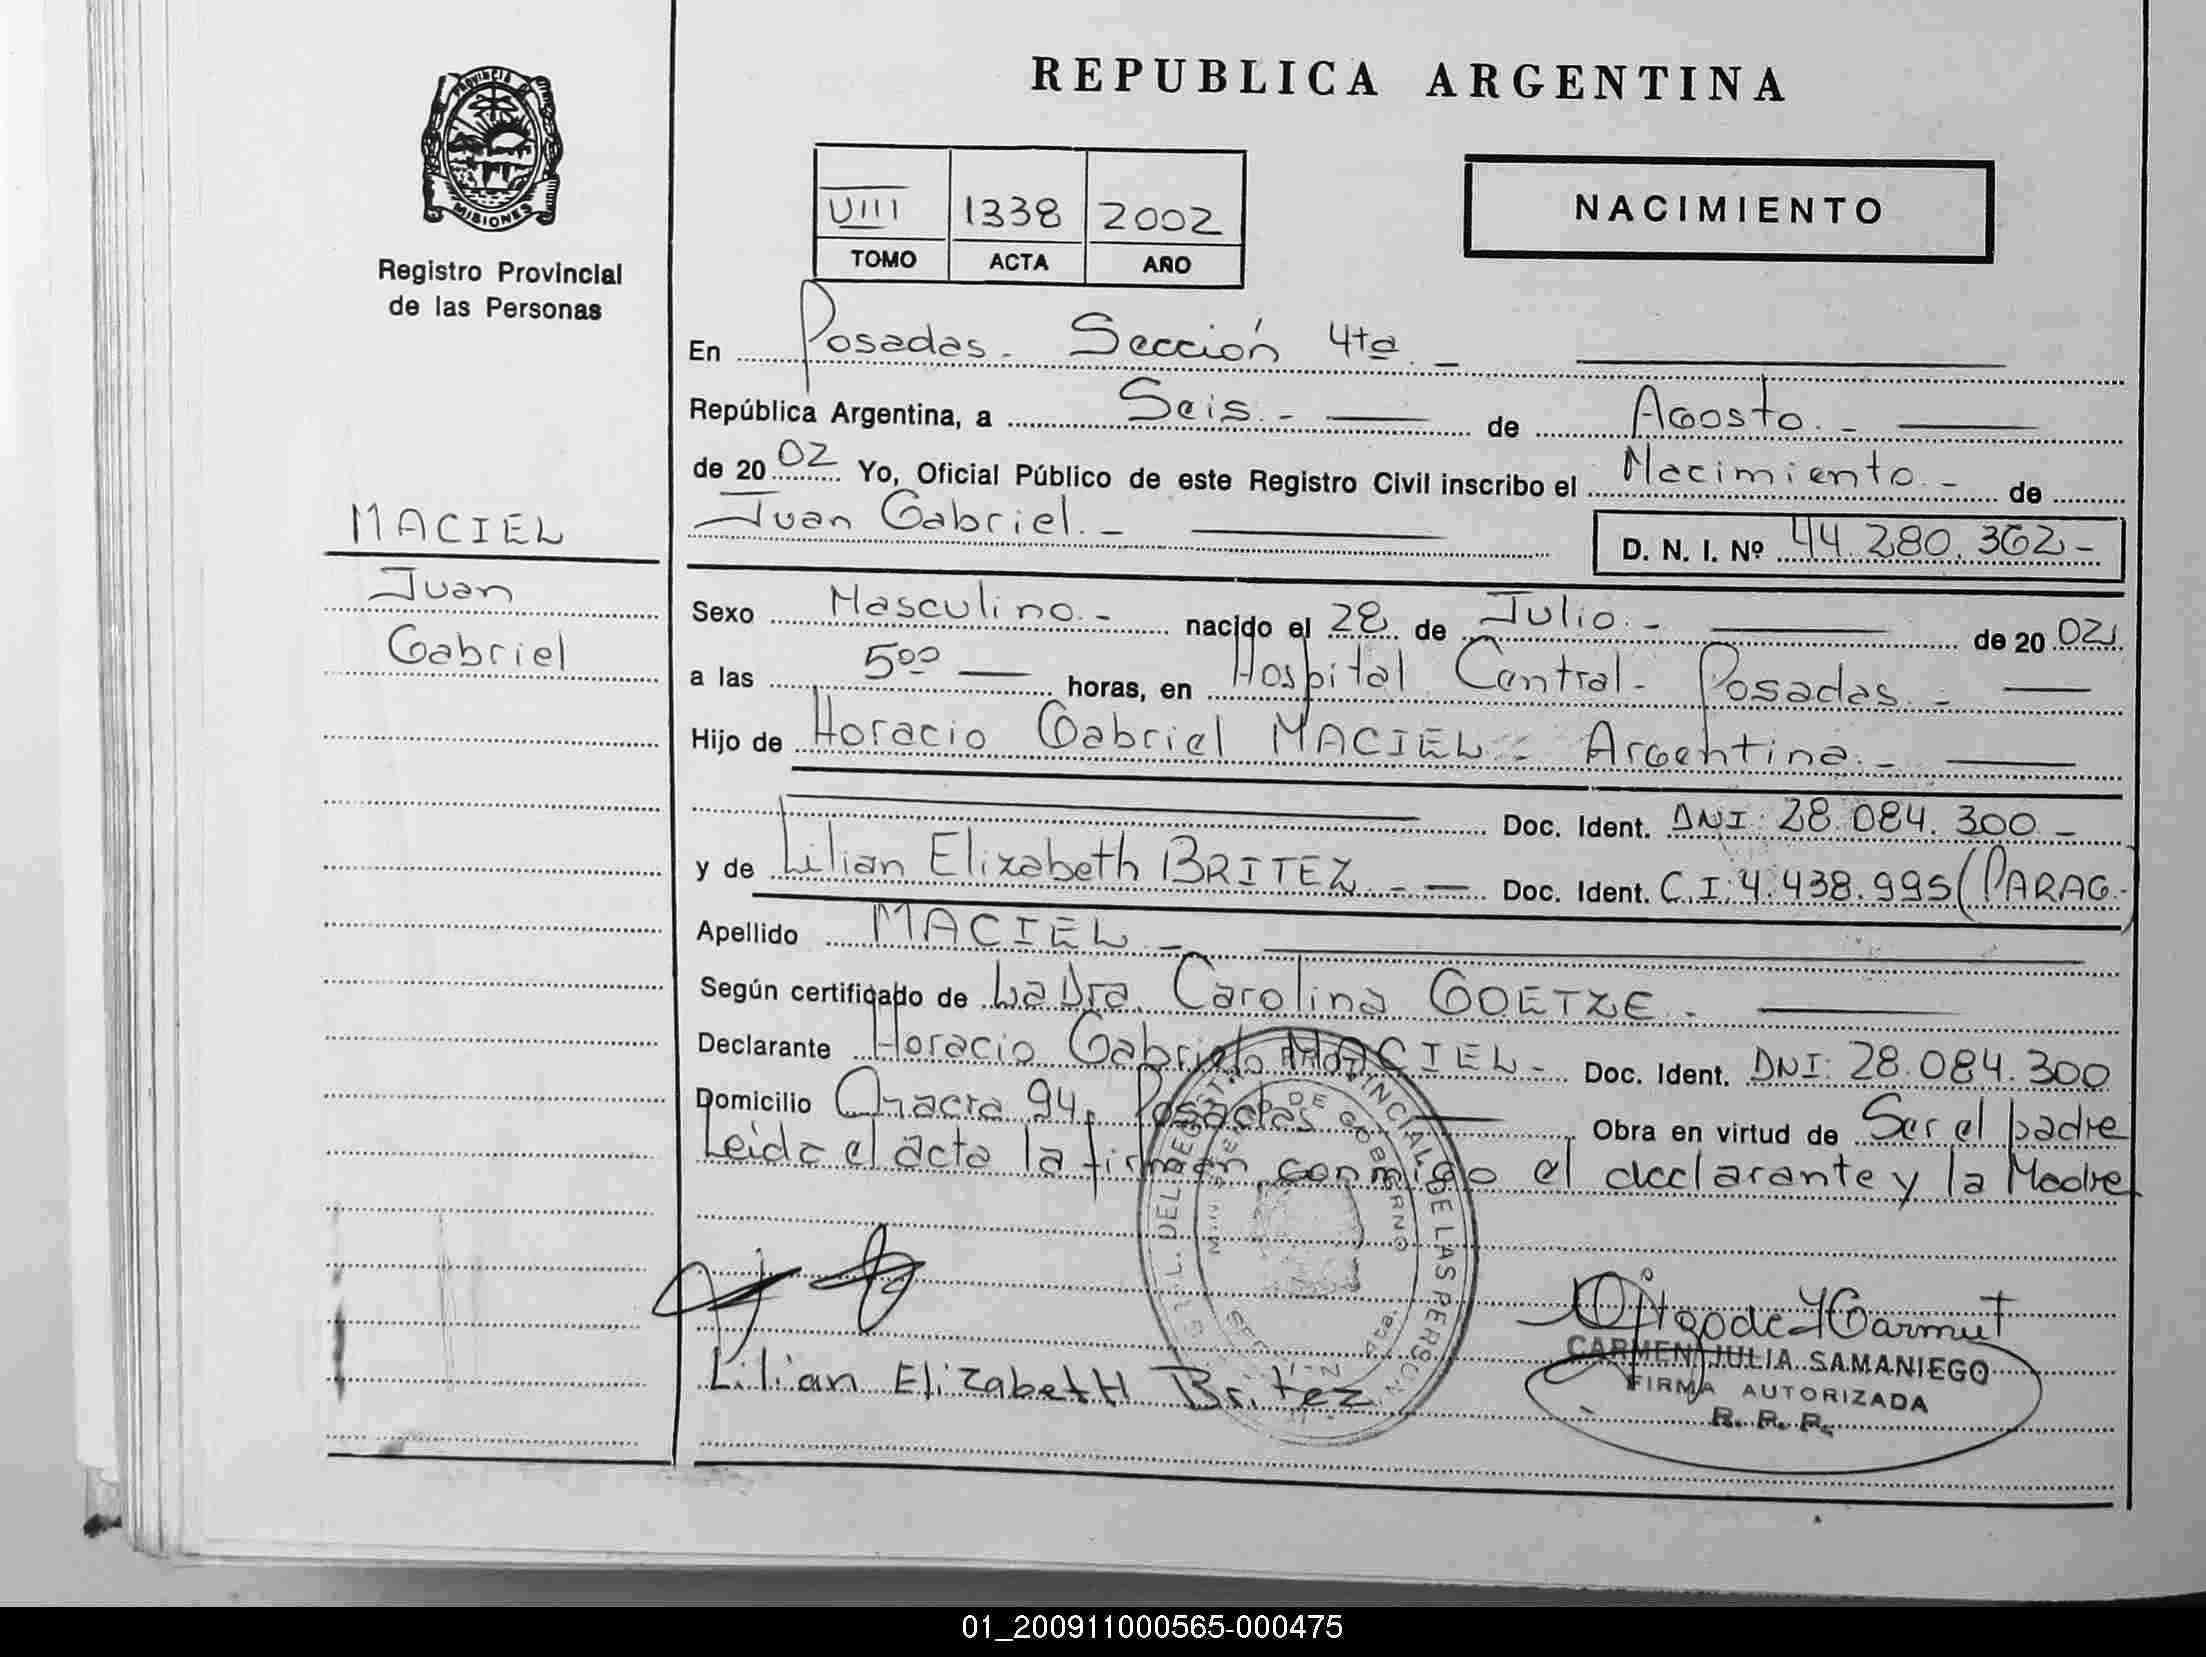 PROVINCIA DE
MISIONES
Registro Provincial
de las Personas
MACIEL
Juan
Gabriel
REPUBLICA ARGENTINA
VIII 1338 2002
TOMO ACTA AÑO
NACIMIENTO
En Posadas.- Sección 4ta.-
República Argentina, a Seis.- de Agosto.-
de 2002 Yo, Oficial Público de este Registro Civil inscribo el Nacimiento.- de
Juan Gabriel.- D. N. I. Nº 44.280.362-
Sexo Masculino.- nacido el 28 de Julio.- de 2002
a las 5⁰⁰ horas, en Hospital Central- Posadas.-
Hijo de Horacio Gabriel MACIEL- Argentina.-
Doc. Ident. DNI: 28.084.300.-
y de Lilian Elizabeth BRITEZ.- Doc. Ident. C.I: 4.438.995 (PARAG.-)
Apellido MACIEL.-
Según certificado de La Dra. Carolina GOETZE.-
Declarante Horacio Gabriel MACIEL.- Doc. Ident. DNI: 28.084.300
Domicilio Chacra 94, Posadas Obra en virtud de Ser el padre
Leida el acta la firman conmigo el declarante y la Madre
DEL REGISTRO PROVINCIAL DE LAS PERSONAS
DE GOBIERNO
4ta.
Lilian Elizabeth Britez
CARMEN JULIA SAMANIEGO
FIRMA AUTORIZADA
R. P. P.
01_200911000565-000475